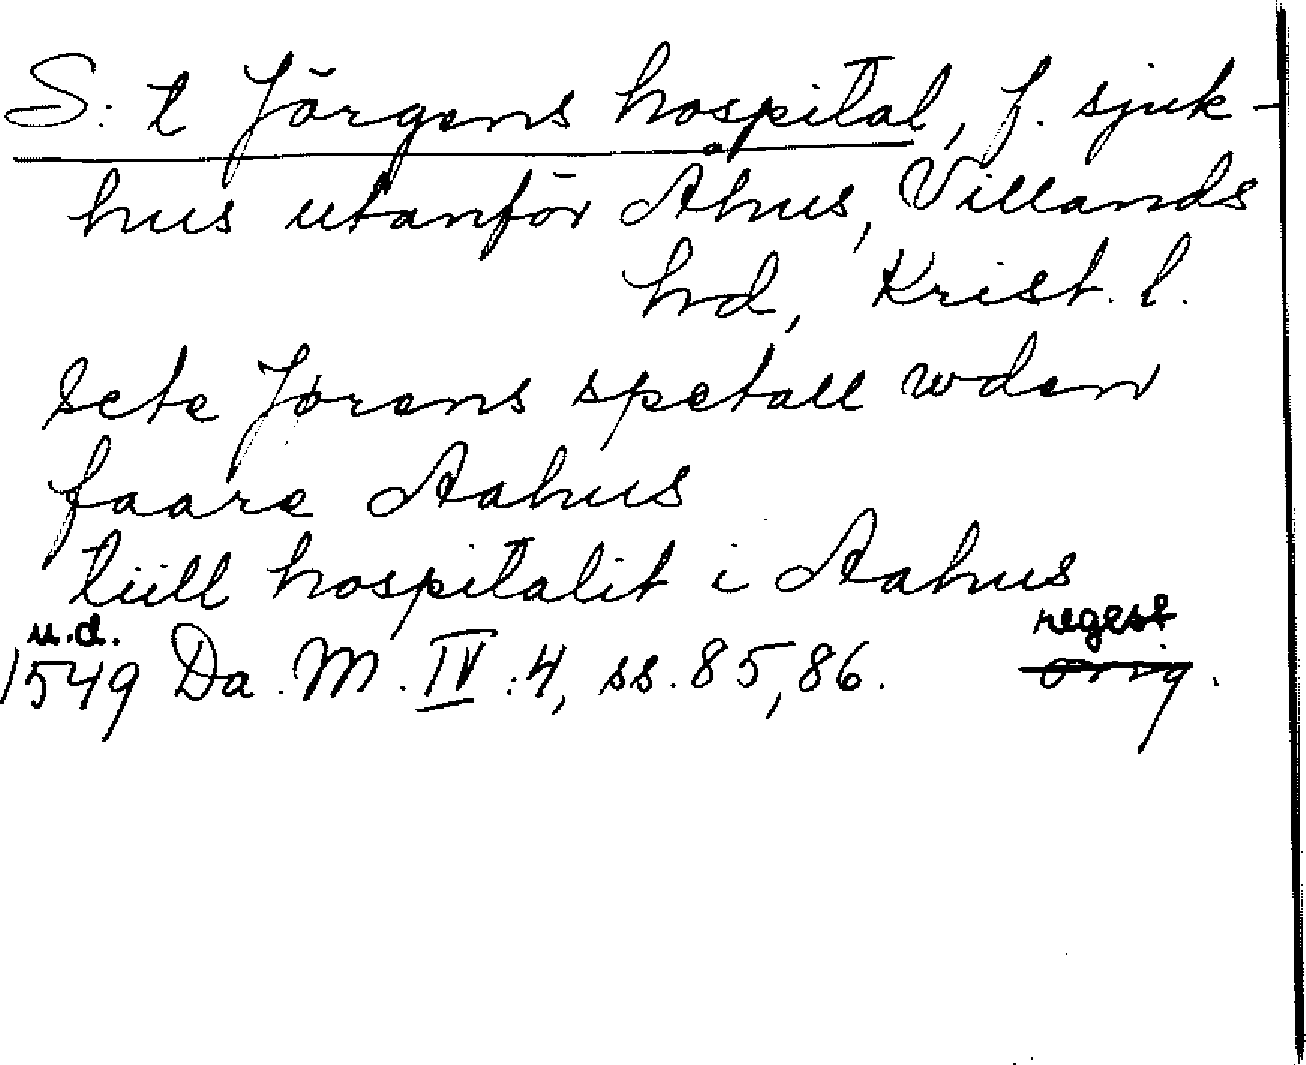 S:t Jörgens hospital, f. sjuk-
hus utanför Åhus, Villands
hd, Krist. l.
Scte Jørens spetall wden
faare Aahus
tiill hospitalit i Aahus
u.d. regest
1549 Da. M. IV:4, ss. 85, 86. orig.